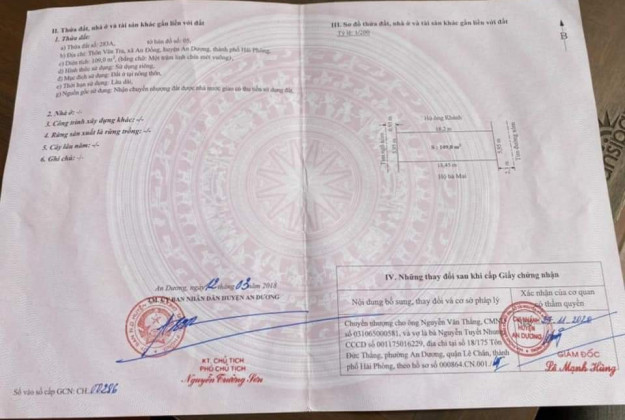 II. Thửa đất, nhà ở và tài sản khác gắn liền với đất
1. Thửa đất:
a) Thửa đất số: 283A, tờ bản đồ số: 09,
b) Địa chỉ: Thôn Văn Tra, xã An Đồng, huyện An Dương, thành phố Hải Phòng,
c) Diện tích: 109,0 m², (bằng chữ: Một trăm linh chín mét vuông),
d) Hình thức sử dụng: Sử dụng riêng,
đ) Mục đích sử dụng: Đất ở tại nông thôn,
e) Thời hạn sử dụng: Lâu dài,
g) Nguồn gốc sử dụng: Nhận chuyển nhượng đất được nhà nước giao có thu tiền sử dụng đất.
2. Nhà ở: -/-
3. Công trình xây dựng khác: -/-
4. Rừng sản xuất là rừng trồng: -/-
5. Cây lâu năm: -/-
6. Ghi chú: -/-
An Dương, ngày 12 tháng 03 năm 2018
TM. ỦY BAN NHÂN DÂN HUYỆN AN DƯƠNG
KT. CHỦ TỊCH
PHÓ CHỦ TỊCH
Nguyễn Trường Sơn
Số vào sổ cấp GCN: CH
III. Sơ đồ thửa đất, nhà ở và tài sản khác gắn liền với đất
Tỷ lệ: 1/200
B
Hộ ông Khánh
18,2 m
109,0 m²
Hộ bà Mai
IV. Những thay đổi sau khi cấp Giấy chứng nhận
Nội dung bổ sung, thay đổi và cơ sở pháp lý
Xác nhận của cơ quan
có thẩm quyền
Chuyển nhượng cho ông Nguyễn Văn Thắng, CMND
số 031063000581, và vợ là bà Nguyễn Tuyết Nhung
CCCD số 001175016229, địa chỉ tại số 18/175 Tôn
Đức Thắng, phường An Dương, quận Lê Chân, thành
phố Hải Phòng, theo hồ sơ số 000864.CN.001.
CHI NHÁNH
HUYỆN
AN DƯƠNG
GIÁM ĐỐC
Lê Mạnh Hùng